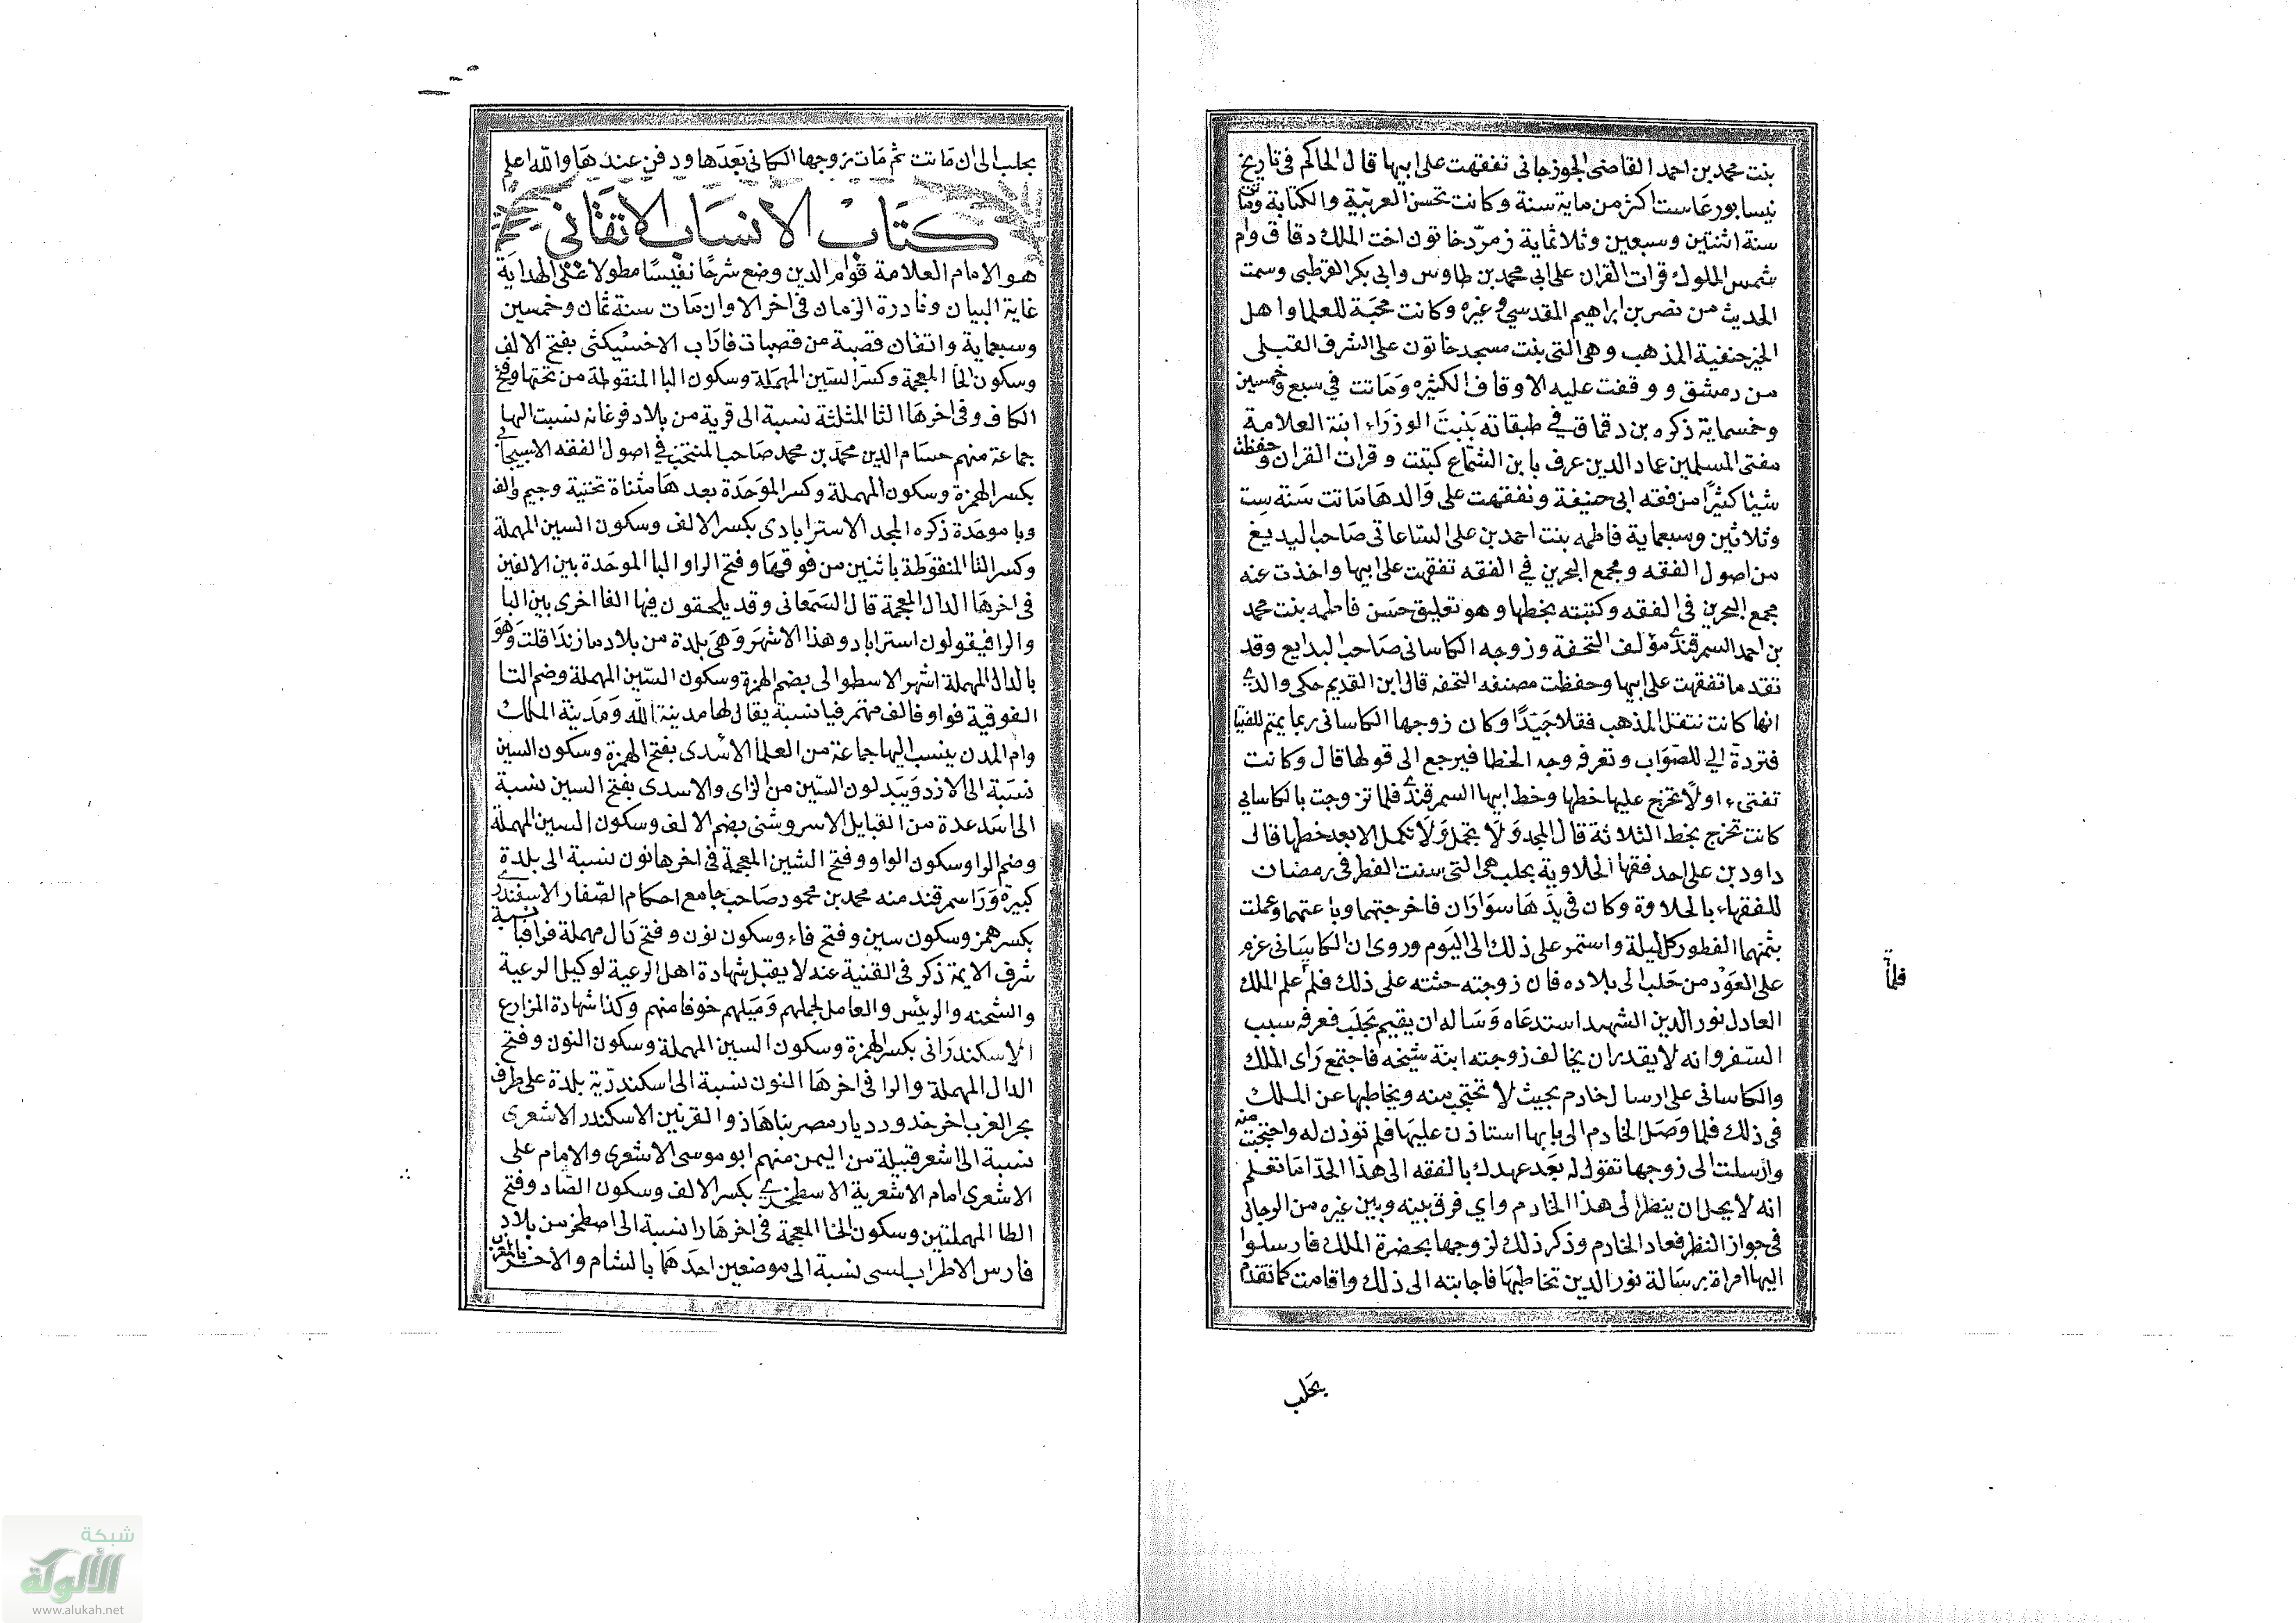 بنت محمد بن احمد القاضى الجوزجانى تفقهت على ابيها قال الحاكم فى تاريخ
نيسابور عاشت اكثر من ماية سنة وكانت تحسن العربية والكتابة وماتت
سنة اثنتين وسبعين وثلاثماية زمرد خاتون اخت الملك دقاق وام
شمس الملوك قرات القران على ابى محمد بن طاوس وابى بكر القرطبى وسمت
الحديث من نصر بن ابراهيم المقدسي وغيره وكانت محبة للعلما واهل
الخير حنفية المذهب وهى التى بنت مسجد خاتون على الشرف القبلى
من دمشق ووقفت عليه الاوقاف الكثيره وماتت في سبع وخمسين
وخمسماية ذكره بن دقماق في طبقاته بنت الوزراء ابنة العلامة
مفتى المسلمين عماد الدين عرف بابن الشماع كتبت وقرات القران وحفظت
شيئا كثيرا من فقه ابى حنيفة وتفقهت على والدها ماتت سنة ست
وثلاثين وسبعماية فاطمه بنت احمد بن على الساعاتى صاحب البديع
من اصول الفقه ومجمع البحرين في الفقه تفقهت على ابيها واخذت عنه
مجمع البحرين فى الفقه وكتبته بخطها وهو تعليق حسن فاطمه بنت محمد
بن احمد السمرقندي مؤلف التحفة وزوجه الكاسانى صاحب البدايع وقد
تقدما تفقهت على ابيها وحفظت مصنفه التحفه قال ابن القديم حكى والدي
انها كانت تنقل المذهب فقلا جيدا وكان زوجها الكاسانى ربما يهتم للفتيا
فتردة الي للصواب وتعرفه وجه الخطا فيرجع الى قولها قال وكانت
تفتى، او لا تخرج عليها خطها وخط ابيها السمرقندي فلما تزوجت بالكاسانى
كانت تخرج بخط الثلاثة قال المجد ولا يتحمل ولا تكمل الا بعد خطها قال
داود بن على احد فقها الحلاوية بحلب هى التى سنت الفطر فى رمضان
للفقهاء بالحلاوة وكان فى يدها سواران فاخرجتهما وباعتهما وعملت
بثمنهما الفطور كل ليلة واستمر على ذلك الى اليوم وروى ان الكاسانى عزم
على العود من حلب الى بلاده فان زوجته حثته على ذلك فلم علم الملك
فلما
العادل نور الدين الشهيد استدعاه وساله ان يقيم بحلب فعرفه سبب
السفر وانه لا يقدر ان يخالف زوجته ابنة شيخه فاجتمع راى الملك
والكاسانى على ارسال خادم بحيث لا تحتجب منه ويخاطبها عن الملك
فى ذلك فلما وصل الخادم الى بابها استاذن عليها فلم توذن له واحتجبت منه
وارسلت الى زوجها تقول له بعد عهدك بالفقه الى هذا الحد اما تعلم
انه لا يحل ان ينظر الى هذا الخادم واي فرق بينه وبين غيره من الرجال
فى جواز النظر فعاد الخادم وذكر ذلك لزوجها بحضرة الملك فارسلوا
اليها امراة برسالة نور الدين تخاطبها فاجابته الى ذلك واقامت كما تقدم
بحلب
بحلب الى ان ماتت ثم مات زوجها الكاسانى بعدها ودفن عندها والله اعلم
كتاب الانساب الاتقانى
هو الامام العلامة قوام الدين وضع شرحا نفيسا مطولا على الهداية
غاية البيان ونادرة الزمان فى اخر الاوان مات سنة ثمان وخمسين
وسبعماية واتقان قصبة من قصبات فاراب الاخسيكثى بفتح الالف
وسكون الخا المعجمة وكسر السين المهملة وسكون اليا المنقوطة من تحتها وفتح
الكاف وفى اخرها الثا المثلثة نسبة الى قرية من بلاد فرغانه نسبت اليها
جماعة منهم حسام الدين محمد بن محمد صاحب المنتخب في اصول الفقه الاسبيجابي
بكسر الهمزة وسكون المهملة وكسر الموحدة بعدها مثناة تحتية وجيم والف
وبا موحدة ذكره المجد الاسترابادى بكسر الالف وسكون السين المهملة
وكسر التا المنقوطة باثنين من فوقها وفتح الرا والبا الموحدة بين الالفين
فى اخرها الدال المعجمة قال السمعانى وقد يلحقون فيها الفا اخرى بين البا
والرا فيقولون استراباد وهذا الاشهر وهى بلدة من بلاد مازندا قلت وهو
بالدال المهملة اشهر الاسطوالى بضم الهمزة وسكون السين المهملة وضم التا
الفوقية فواو فالف مهتمر فيا نسبة يقال لها مدينة الله ومدينة الملك
وام المدن ينسب اليها جماعة من العلما الاسدى بفتح الهمزة وسكون السين
نسبة الى الازد ويبدلون السين من الزاى والاسدى بفتح السين نسبة
الى اسد عدة من القبايل الاسروشنى بضم الالف وسكون السين المهملة
وضم الرا وسكون الواو وفتح الشين المعجمة فى اخرها نون نسبة الى بلدة
كبيرة ورا سمرقند منه محمد بن محمود صاحب جامع احكام الصغار الاسفندري
بكسر همز وسكون سين وفتح فاء وسكون نون وفتح دال مهملة فرا فيا نسبة
شرف الايمة ذكر فى القنية عنه لا يقبل شهادة اهل الرعية لوكيل الرعية
والشحنه والريس والعامل لجهلهم وميلهم خوفا منهم وكذا شهادة المزارع
الاسكندرانى بكسر الهمزة وسكون السين المهملة وسكون النون وفتح
الدال المهملة والرا فى اخرها النون نسبة الى اسكندرية بلدة على طرف
بحر الغرب اخر حدود ديار مصر بناها ذو القرنين الاسكندر الاشعرى
نسبة الى اشعر قبيلة من اليمن منهم ابو موسى الاشعرى والامام على
الاشعرى امام الاشعرية الاسطخري بكسر الالف وسكون الصاد وفتح
الطا المهملتين وسكون الخا المعجمة فى اخرها را نسبة الى اصطخر من بلاد
فارس الاطرابلسى نسبة الى موضعين احدهما بالشام والاخر بالمغرب
شبكة
الألوكة
www.alukah.net